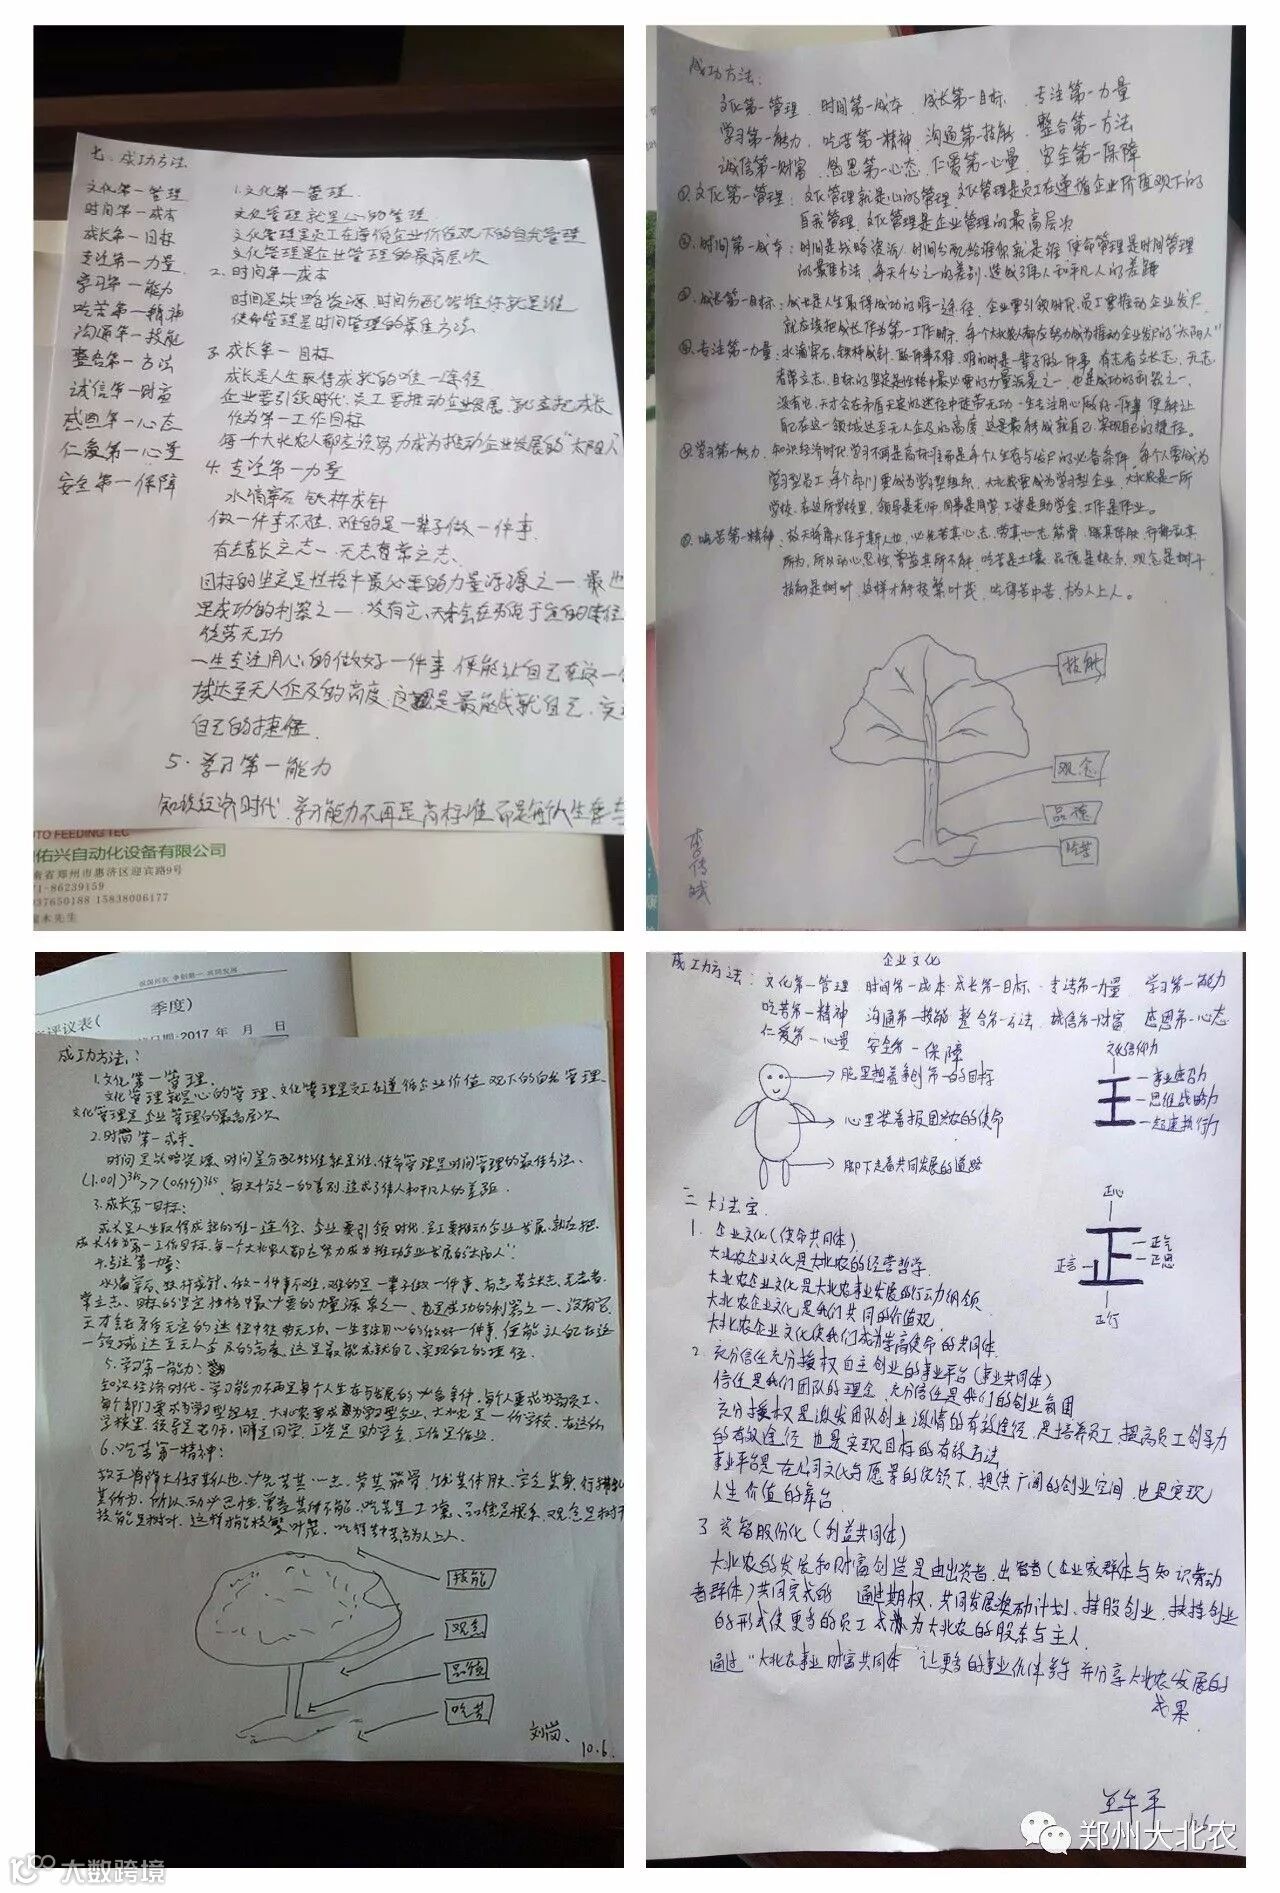 七、成功方法
文化第一管理
时间第一成本
成长第一目标
专注第一力量
学习第一能力
吃苦第一精神
沟通第一技能
整合第一方法
诚信第一财富
感恩第一心态
仁爱第一心量
安全第一保障
1.文化第一管理
文化管理就是心的管理
文化管理是员工在遵循企业价值观下的自我管理
文化管理是企业管理的最高层次
2.时间第一成本
时间是战略资源、时间分配给谁你就是谁
使命管理是时间管理的最佳方法
3.成长第一目标
成长是人生取得成就的唯一途径
企业要引领时代、员工要推动企业发展、就应把成长
作为第一工作目标
每一个大北农人都应该努力成为推动企业发展的"太阳人
4.专注第一力量
水滴穿石 铁杵成针
做一件事不难、难的是一辈子做一件事.
有志者长之志、无志者常之志、
目标的坚定是性格中最必要的力量源泉之一 最也
是成功的利器之一.没有它、天才会在矛盾无定的迷径
徒劳无功
一生专注用心的做好一件事 便能让自己在这一
域达至无人企及的高度、这就是最能成就自己、实
自己的捷径
5.学习第一能力
知识经济时代、学习能力不再是高标准 而是每个人生存与
UTO FEEDING TEC
佑兴自动化设备有限公司
南省郑州市惠济区迎宾路9号
71-86239159
037650188 15838006177
成功方法：
文化第一管理 时间第一成本 成长第一目标 专注第一力量
学习第一能力 吃苦第一精神 沟通第一技能 整合第一方法
诚信第一财富 感恩第一心态 仁爱第一心量 安全第一保障
①.文化第一管理：文化管理就是心的管理 文化管理是员工在遵循企业价值观下的
自我管理 文化管理是企业管理的最高层次
②.时间第一成本：时间是战略资源 时间分配给谁你就是谁 使命管理是时间管理
的最佳方法、每天千分之一的差别、造成了伟人和平凡人的差距
③.成长第一目标：成长是人生取得成功的唯一途径、企业要引领时代、员工要推动企业发展
就应该把成长作为第一工作目标、每个大北农人都应努力成为推动企业发展的"太阳人"
④.专注第一力量：水滴穿石、铁杵成针、做件事不难、难的时是一辈子做一件事、有志者立长志、无志
者常立志、目标的坚定是性格中最必要的力量源泉之一、也是成功的利器之一、
没有它、天才会在矛盾无定的迷径中徒劳无功 一生专注用心做好一件事 便能让
自己在这一领域达至无人企及的高度、这是最能成就自己、实现自己的捷径。
⑤学习第一能力、知识经济时代、学习不再是高标准而是每个人生存与发展的必备条件、每个人要成为
学习型员工、每个部门要成为学习型组织、大北农要成为学习型企业、大北农是一所
学校、在这所学校里、领导是老师、同事是同学、工资是助学金、工作是作业。
⑥.吃苦第一精神、故天将降大任于斯人也、必先苦其心志、劳其筋骨、饿其体肤
所为、所以动心忍性、曾益其所不能、吃苦是土壤、品德是根系、观念是树干
技能是树叶、这样才能枝繁叶茂、吃得苦中苦、方为人上人。
技能
观念
品德
吃苦
报国兴农 争创第一 共同发展
季度)
评议表(
日期:2017 年 月 日
成功方法：
1.文化第一管理、
文化管理就是心的管理、文化管理是员工在遵循企业价值观下的自我管理、
文化管理是企业管理的最高层次
2.时间第一成本、
时间是战略资源、时间是分配给谁就是谁、使命管理是时间管理的最佳方法、
每天千分之一的差别、造成了伟人和平凡人的差距.
3.成长第一目标：
成长是人生取得成就的唯一途径、企业要引领时代、员工要推动企业发展、就应把
成长作为第一工作目标、每一个大北农人都应努力成为推动企业发展的"太阳人"：
4.专注第一力量：
水滴穿石、铁杵成针、做一件事不难、难的是一辈子做一件事、有志者立长志、无志者
常立志、目标的坚定性格中最必要的力量源泉之一、也是成功的利器之一、没有它、
天才会在矛盾无定的迷径中徒劳无功、一生专注用心的做好一件事、便能让自己在这
一领域达至无人企及的高度、这是最能成就自己、实现自己的捷径.
5.学习第一能力：
知识经济时代、学习能力不再是每个人生存与发展的必备条件、每个人要成为学习型员工、
每个部门要成为学习型组织、大北农要成为学习型企业、大北农是一所学校、在这所
学校里、领导是老师、同事是同学、工资是助学金、工作是作业.
6.吃苦第一精神：
技能是树叶、这样才能枝繁叶茂、吃得苦中苦方为人上人.
技能
观念
品德
吃苦
刘岗、
10.6.
企业文化
成功方法：文化第一管理 时间第一成本 成长第一目标 专注第一力量 学习第一能力
吃苦第一精神 沟通第一技能 整合第一方法 诚信第一财富 感恩第一心态
仁爱第一心量 安全第一保障
脑里想着争创第一的目标
心里装着报国兴农的使命
脚下走着共同发展的道路
文化信仰力
事业感召力
思维战略力
一起速执行力
三大法宝
正心
正气
正思
正言
正行
1.企业文化(使命共同体)
大北农企业文化是大北农的经营哲学.
大北农企业文化是大北农事业发展的行动力纲领.
大北农企业文化是我们共同的价值观
大北农企业文化使我们成为崇高使命的共同体.
2.充分信任充分授权自主创业的事业平台(事业共同体)
信任是我们团队的理念 充分信任是我们的创业氛围
充分授权是激发团队创业激情的有效途径、是培养员工、提高员工创造力
的有效途径 也是实现目标的有效方法
事业平台是在公司文化与愿景的统领下、提供广阔的创业空间、也是实现
人生价值的舞台.
3 资智股份化(利益共同体)
大北农的发展和财富创造是由出资者、出智者(企业家群体与知识劳动
者群体)共同完成的 通过期权、共同发展奖励计划、持股创业、扶持创业
的形式使更多的员工成为大北农的股东与主人.
通过"大北农事业财富共同体"让更多的事业伙伴参与并分享大北农发展的
成果
郑州大北农
大数跨境